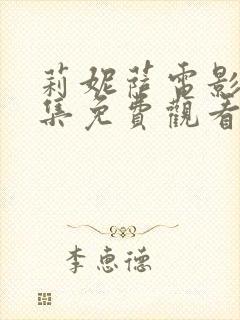 莉妮薩電影
集免費觀看
李惠德